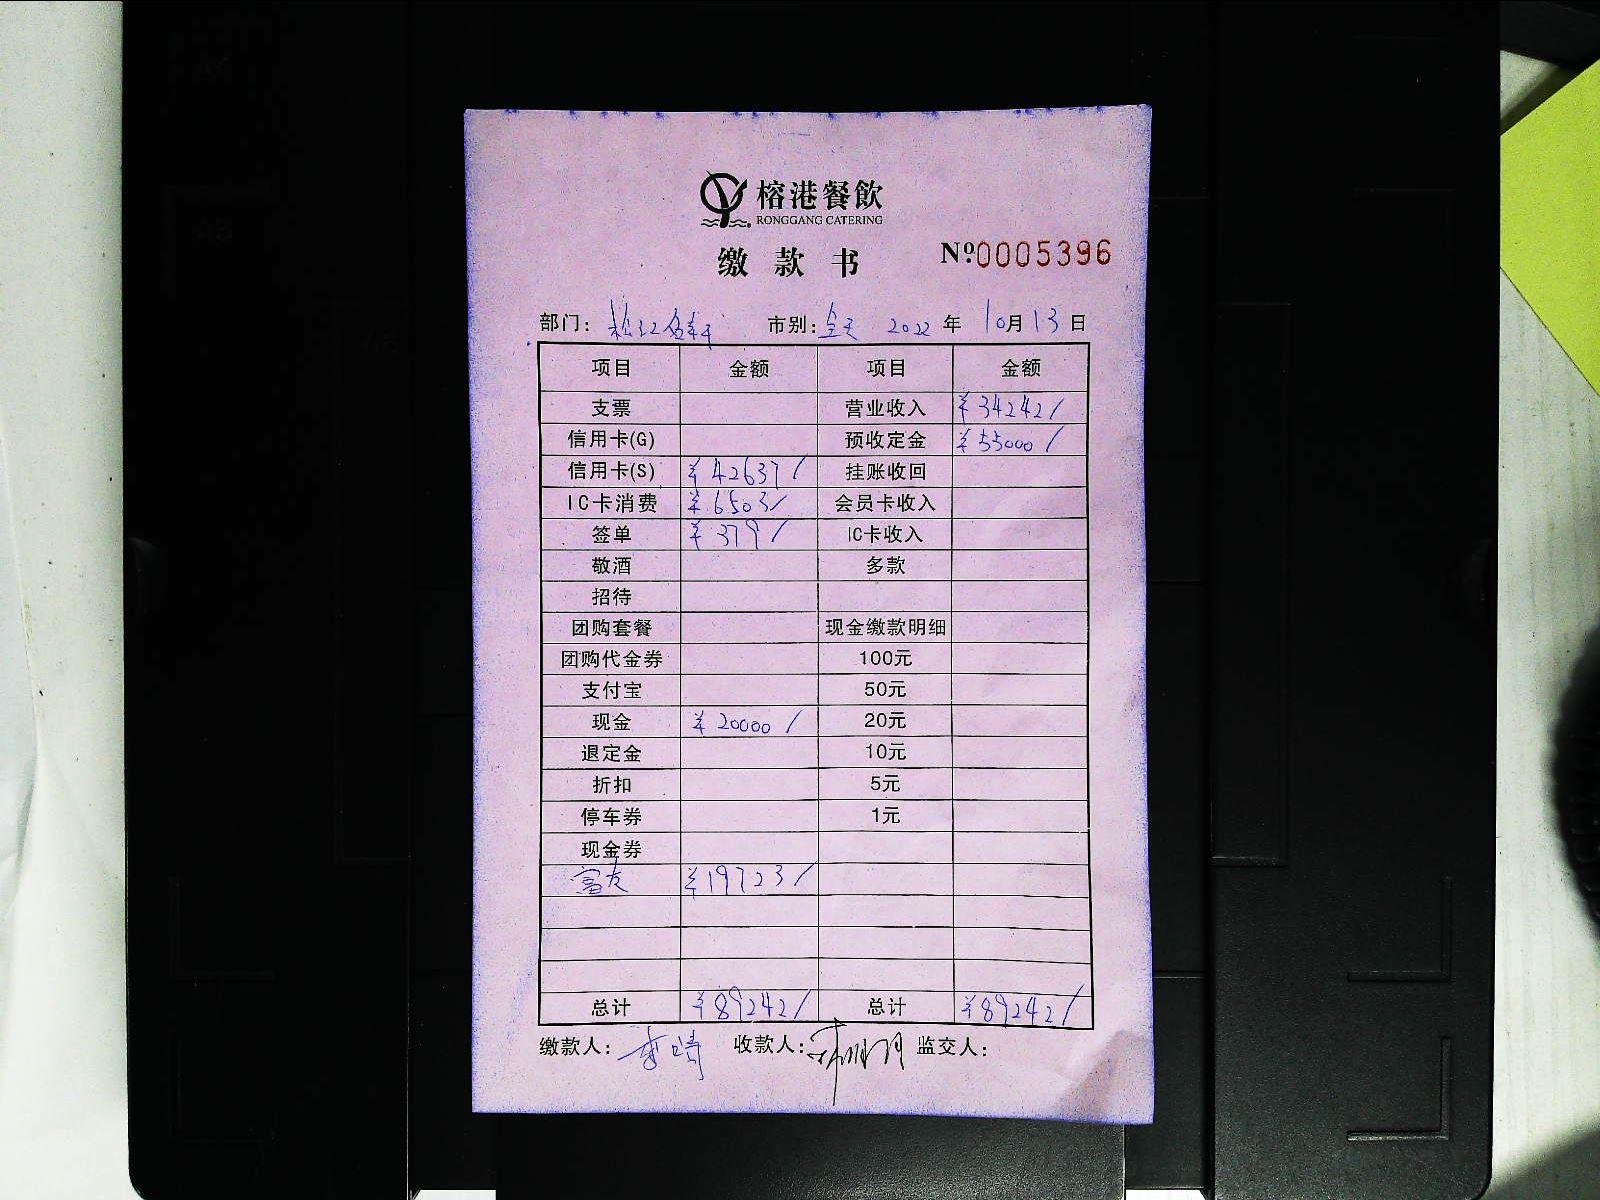 榕港餐飲
RONGGANG CATERING
缴款书 Nº:0005396
部门: 松江 市别: 全天 2022年10月13日
项目 金额 项目 金额
支票 营业收入 ¥34242/
信用卡(G) 预收定金 ¥55000/
信用卡(S) ¥42637/ 挂账收回
IC卡消费 ¥6503/ 会员卡收入
签单 ¥379/ IC卡收入
敬酒 多款
招待
团购套餐 现金缴款明细
团购代金券 100元
支付宝 50元
现金 ¥20000/ 20元
退定金 10元
折扣 5元
停车券 1元
现金券
富友 ¥19723/
总计 ¥89242/ 总计 ¥89242/
缴款人: 李晴 收款人: 监交人: